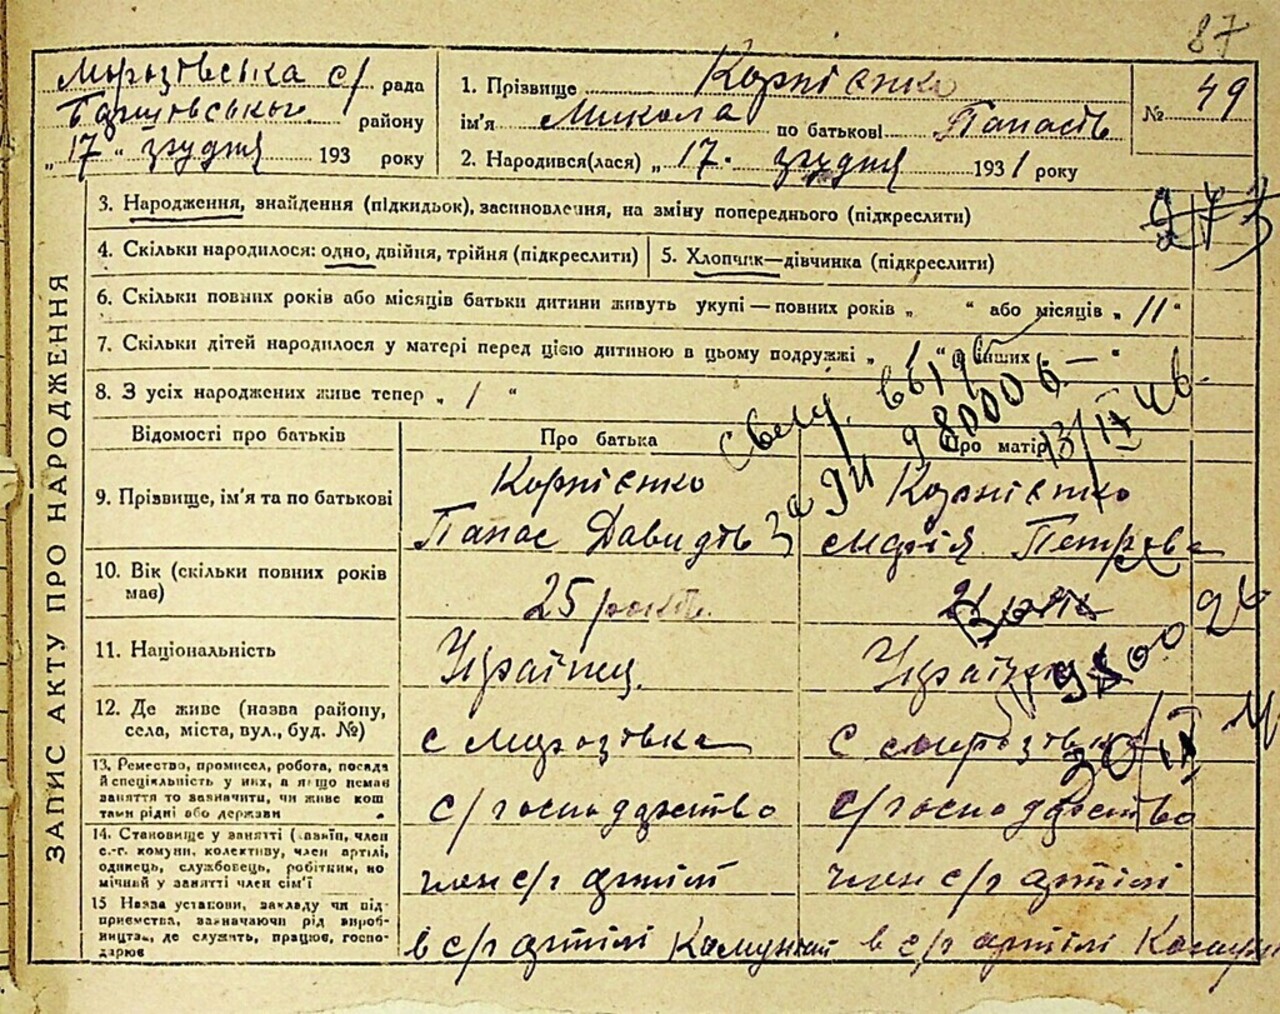 87
Морозівська с/рада
району
„17“ грудня 193 року
1. Прізвище Корнієнко
ім'я Микола по батькові Панасів
2. Народився(лася) „17. грудня 1931 року
№ 49
273
ЗАПИС АКТУ ПРО НАРОДЖЕННЯ
3. Народження, знайдення (підкидьок), засиновлення, на зміну попереднього (підкреслити)
4. Скільки народилося: одно, двійня, трійня (підкреслити)
5. Хлопчик—дівчинка (підкреслити)
6. Скільки повних років або місяців батьки дитини живуть укупі — повних років „ “ або місяців „ 11 “
7. Скільки дітей народилося у матері перед цією дитиною в цьому подружжі „ “ інших — “
8. З усіх народжених живе тепер „ 1 “
Відомості про батьків
Про батька
Про матір
9. Прізвище, ім'я та по батькові
Корнієнко
Панас Давидів
Корнієнко
Марія Петрова
10. Вік (скільки повних років
має)
25 років.
11. Національність
Українец.
12. Де живе (назва району,
села, міста, вул., буд. №)
с Морозівка
с Морозівка
13. Ремество, промисел, робота, посада
й спеціяльність у них, а якщо немає
заняття то зазначити, чи живе кош
тами рідні або держави
с/господарство
с/господарство
14. Становище у занятті (хазяїн, член
с.-г. комуни, колективу, член артілі,
одинець, службовець, робітник, по
мічний у занятті член сім'ї
член с/г артілі
член с/г артілі
15 Назва установи, закладу чи під-
приємства, зазначаючи рід вироб-
ництва, де служить, працює, госпо-
дарює
в с/г артілі
в с/г артілі